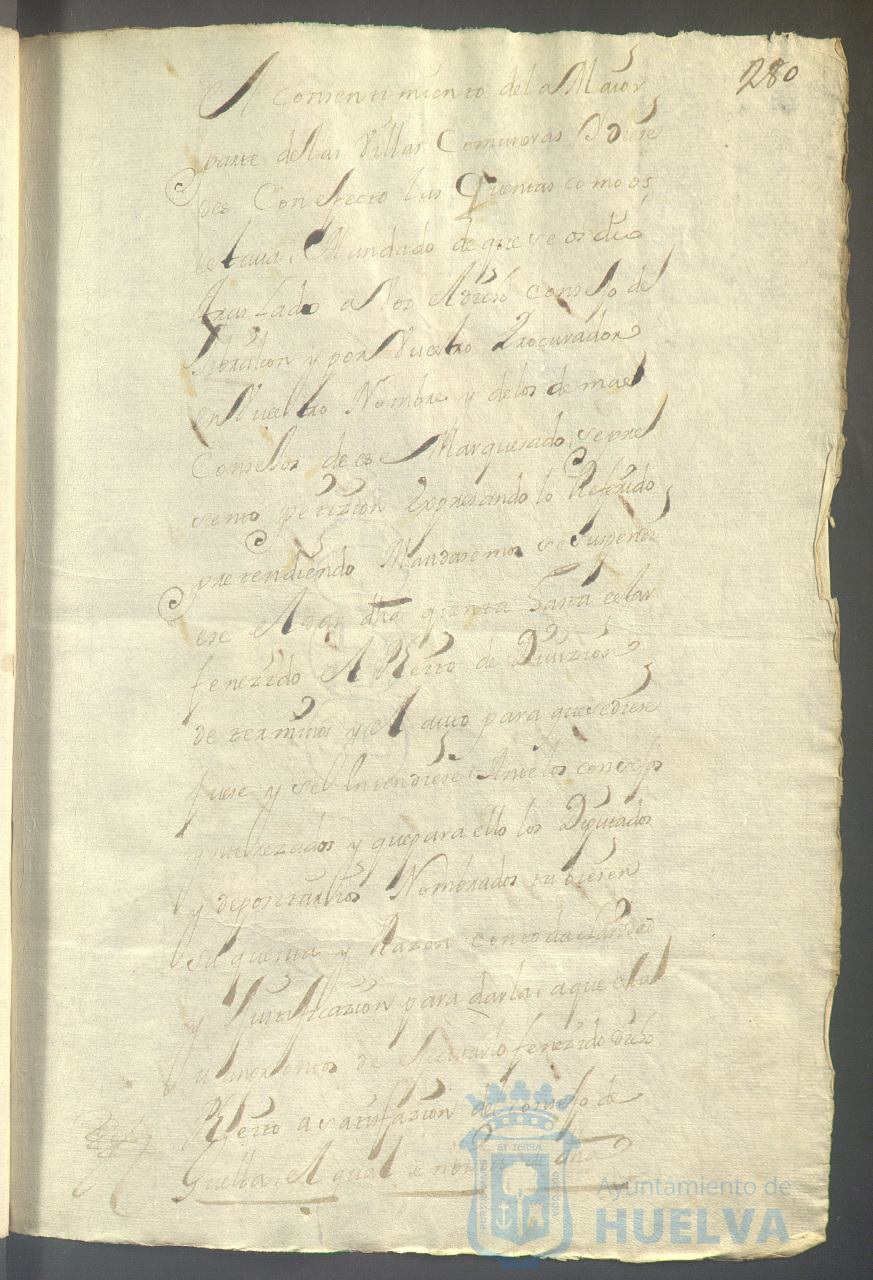 280
Al consentimiento de la Maior
parte de las Villas Comuneras Diese
des Con efecto las Quentas como os
estava, Mandado de que se os dio
traslado a Vos el dicho consejo de
Jibraleon y por Vuestro Procurador
en Vuestro Nombre, y de los demas
Consejos de ese Marquesado, se pre
sento petizion Expresando lo Referido
pretendiendo Mandasemos se suspendi
ese el dar dha quenta hasta estar
fenezido el Pleito de Divizion
de terminos y el auto para que se diese
fuese y se Entendiese Ante los consejos
ynterezados y que para ello los Diputados
y depositarios Nombrados tubiesen
su quenta y Razon con toda claridad
y Justificazion para darla, a que esta
de fenezido dicho
Pleito a satisfazion del consejo de
Guelba, el qual dha
Ayuntamiento de
HUELVA